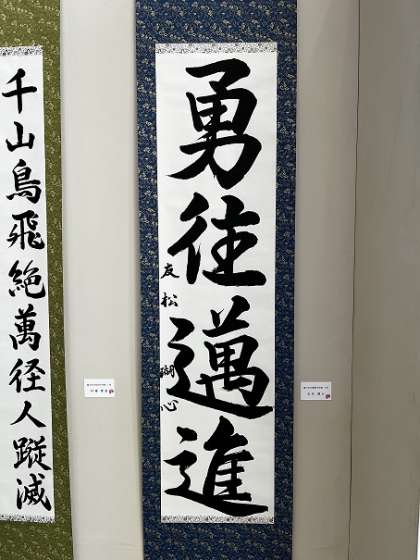 勇往邁進
友松
心
千山鳥飛絶萬径人蹤滅